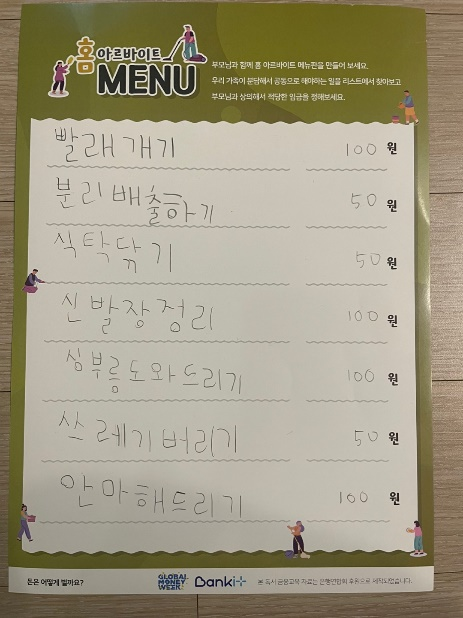 홈 아르바이트
MENU
부모님과 함께 홈 아르바이트 메뉴판을 만들어 보세요.
우리 가족이 분담해서 공동으로 해야하는 일을 리스트에서 찾아보고
부모님과 상의해서 적당한 임금을 정해보세요.
빨래개기 100 원
분리배출하기 50 원
식탁닦기 50 원
신발장정리 100 원
심부름도와드리기 100 원
쓰레기버리기 50 원
안마해드리기 100 원
돈은 어떻게 벌까요? GLOBAL MONEY WEEK Banki+ 본 독서 금융교육 자료는 은행연합회 후원으로 제작되었습니다.